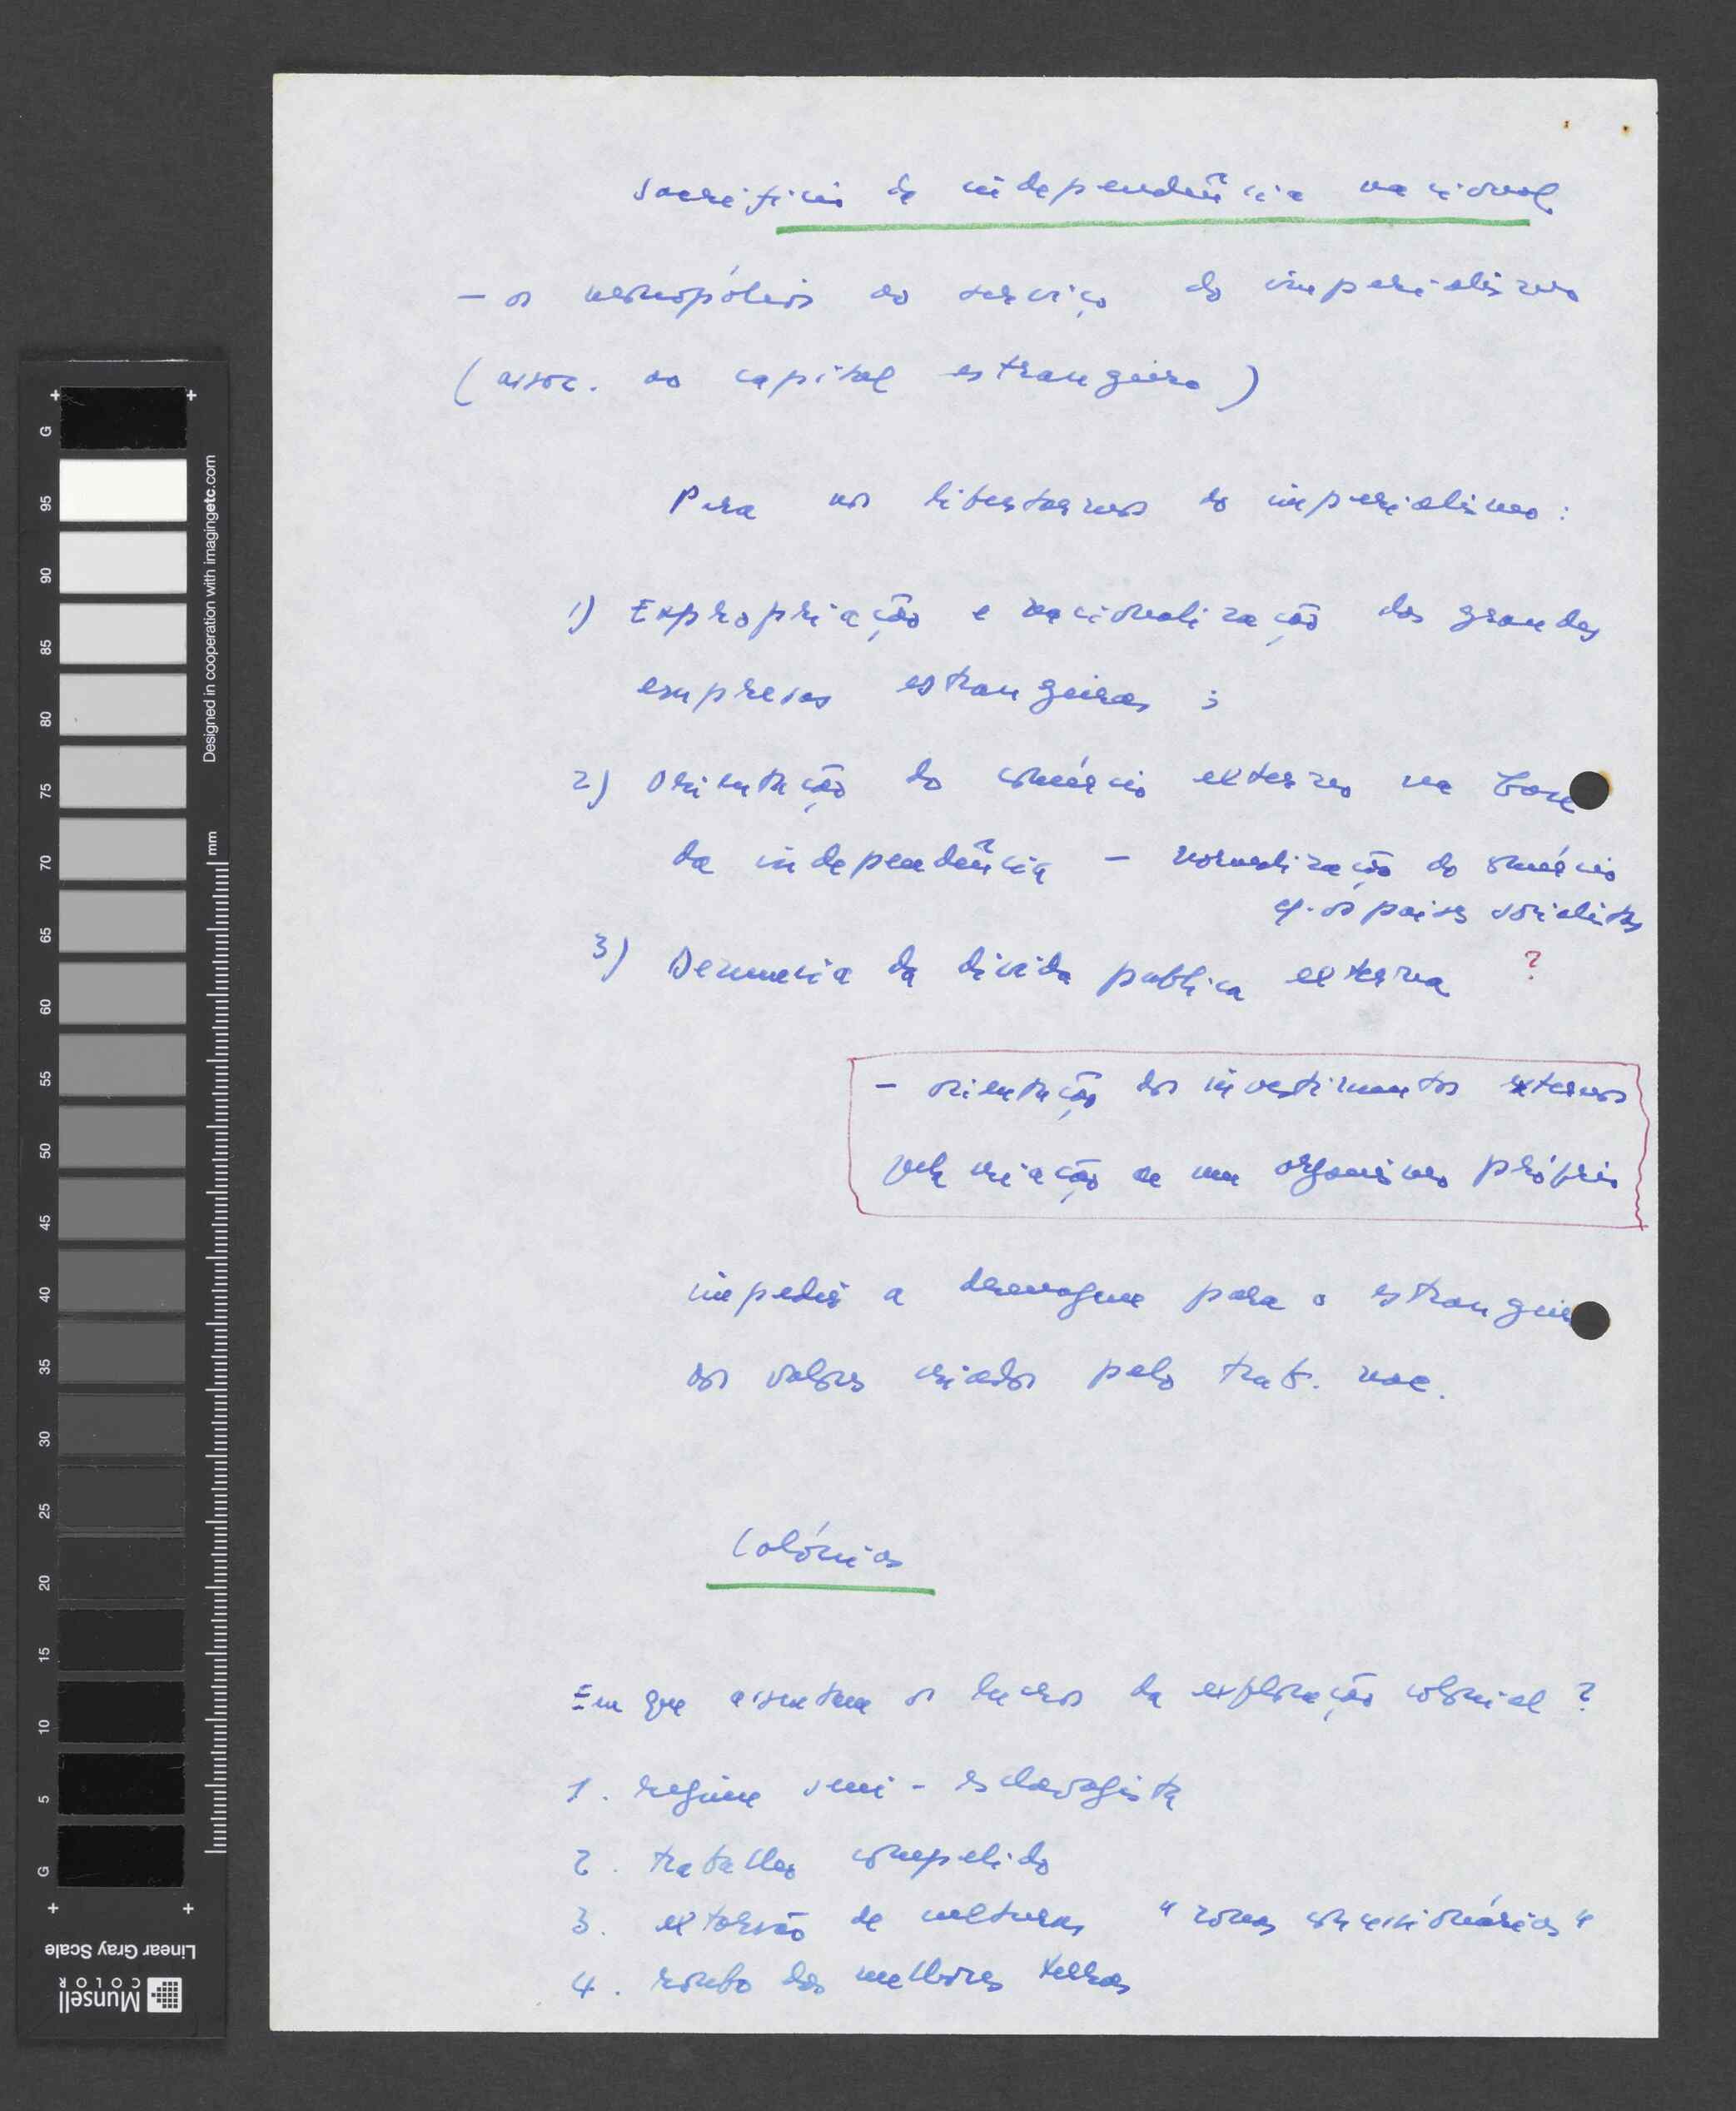 Sacrifício da independência nacional
– os monopólios ao serviço do imperialismo
(assoc. ao capital estrangeiro)
Para nos libertarmos do imperialismo:
1) Expropriação e nacionalização das grandes
empresas estrangeiras;
2) Orientação do comércio externo na base
da independência – normalização do comércio
c/. os países socialistas
3) Denuncia da divida publica externa ?
– orientação dos investimentos externos
pela criação de um organismo próprio
impedir a drenagem para o estrangeiro
dos valores criados pelo trab. nac.
Colónias
Em que assentam os lucros da exploração colonial ?
1. regime semi-esclavagista
2. trabalho compelido
3. extorsão de culturas "zonas concessionárias"
4. roubo das melhores terras
G
95
90
85
80
75
70
65
60
55
50
45
40
35
30
25
20
15
10
5
G
Designed in cooperation with imagingetc.com
mm
Linear Gray Scale
Munsell
COLOR